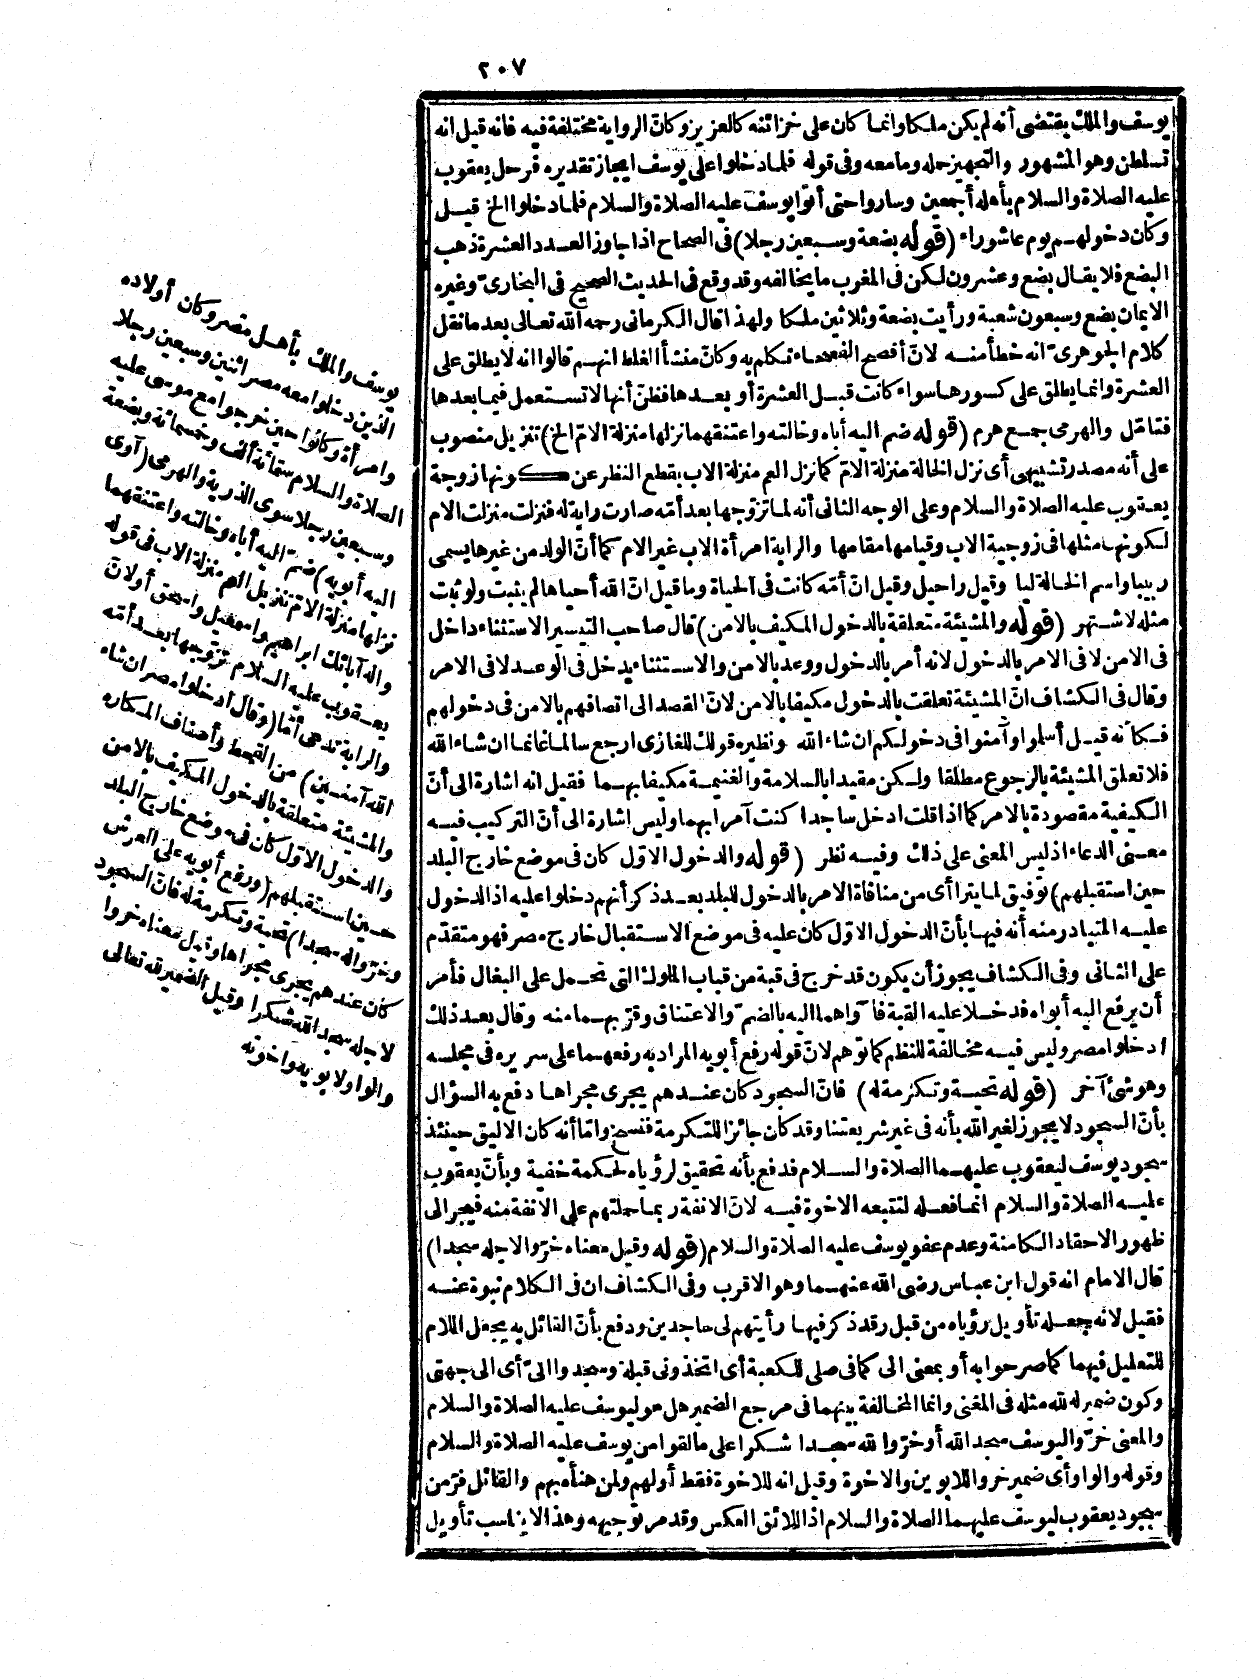 ٢٠٧
يوسف والملك يقتضى أنه لم يكن ملكا وانما كان على خزائنه كالعزيز وكانّ الرواية مختلفة فيه فانه قيل انه
تسلطن وهو المشهور والتجهيز حمله وما معه وفى قوله فلما دخلوا على يوسف ايجاز تقديره فرحل يعقوب
عليه الصلاة والسلام بأهله أجمعين وساروا حتى أتوا يوسف عليه الصلاة والسلام فلما دخلوا الخ قيل
وكان دخولهم يوم عاشوراء (قوله بضعة وسبعين رجلا) فى الصحاح اذا جاوز العدد العشرة ذهب
البضع فلا يقال بضع وعشرون لكن فى المغرب ما يخالفه وقد وقع فى الحديث الصحيح فى البخارىّ وغيره
الايمان بضع وسبعون شعبة ورأيت بضعة وثلاثين ملكا ولهذا قال الكرمانى رحمه الله تعالى بعد ما نقل
كلام الجوهرىّ انه خطأ منه لانّ أفصح الفصحاء تكلم به وكانّ منشأ الغلط انهم قالوا انه لا يطلق على
العشرة وانما يطلق على كسورها سواء كانت قبل العشرة أو بعدها فظنّ أنها لا تستعمل فيما بعدها
فتأمّل والهرمى جمع هرم (قوله ضم اليه أباه وخالته واعتنقهما نزلها منزلة الامّ الخ) تنزيل منصوب
على أنه مصدر تشبيهى أى نزل الخالة منزلة الامّ كما نزل العم منزلة الاب بقطع النظر عن كونها زوجة
يعقوب عليه الصلاة والسلام وعلى الوجه الثانى أنه لما تزوجها بعد أمّه صارت رابة له فنزلت منزلت الام
لكونها مثلها فى زوجية الاب وقيامها مقامها والرابة امرأة الاب غير الام كما أنّ الولد من غيرها يسمى
ربيبا واسم الخالة ليا وقيل راحيل وقيل انّ أمّه كانت فى الحياة وما قيل انّ الله أحياها لم يثبت ولو ثبت
مثله لاشتهر (قوله والمشيئة متعلقة بالدخول المكيف بالامن) قال صاحب التيسير الاستثناء داخل
فى الامن لا فى الامر بالدخول لانه أمر بالدخول ووعد بالامن والاستثناء يدخل فى الوعد لا فى الامر
وقال فى الكشاف انّ المشيئة تعلقت بالدخول مكيفا بالامن لانّ القصد الى اتصافهم بالامن فى دخولهم
فكأنه قيل أسلموا وآمنوا فى دخولكم ان شاء الله ونظيره قولك للغازى ارجع سالما غانما ان شاء الله
فلا تعلق المشيئة بالرجوع مطلقا ولكن مقيدا بالسلامة والغنيمة مكيفا بهما فقيل انه اشارة الى أنّ
الكيفية مقصودة بالامر كما اذا قلت ادخل ساجدا كنت آمرا بهما وليس اشارة الى أنّ التركيب فيه
معنى الدعاء اذ ليس المعنى على ذلك وفيه نظر (قوله والدخول الاوّل كان فى موضع خارج البلد
حين استقبلهم) توفيق لما يترا أى من منافاة الامر بالدخول للبلد بعد ذكر أنهم دخلوا عليه اذ الدخول
عليه المتبادر منه أنه فيها بأنّ الدخول الاوّل كان عليه فى موضع الاستقبال خارج مصر فهو متقدّم
على الثانى وفى الكشاف يجوز أن يكون قد خرج فى قبة من قباب الملوك التى تحمل على البغال فأمر
أن يرفع اليه أبواه فدخلا عليه القبة فآواهما اليه بالضمّ والاعتناق وقرّبهما منه وقال بعد ذلك
ادخلوا مصر وليس فيه مخالفة للنظم كما توهم لانّ قوله رفع أبويه المراد به رفعهما على سريره فى مجلسه
وهو شئ آخر (قوله تحية وتكرمة له) فانّ السجود كان عندهم يجرى مجراها دفع به السؤال
بأنّ السجود لا يجوز لغير الله بأنه فى غير شريعتنا وقد كان جائزا للتكرمة فنسخ وامّا أنه كان الاليق حينئذ
سجود يوسف ليعقوب عليهما الصلاة والسلام فدفع بأنه تحقيق لرؤياه لحكمة خفية وبأنّ يعقوب
عليه الصلاة والسلام انما فعله لتتبعه الاخوة فيه لانّ الانفة ربما حملتهم على الانفة منه فيجر الى
ظهور الاحقاد الكامنة وعدم عفو يوسف عليه الصلاة والسلام (قوله وقيل معناه خرّوا لاجله سجدا)
قال الامام انه قول ابن عباس رضى الله عنهما وهو الاقرب وفى الكشاف ان فى الكلام نبوة عنه
فقيل لانه جعله تأويل رؤياه من قبل وقد ذكر فيها رأيتهم لى ساجدين ودفع بأنّ القائل به يجعل اللام
للتعليل فيهما كما صرحوا به أو بمعنى الى كما فى صلى للكعبة أى اتخذونى قبلة وسجدوا الىّ أى الى جهتى
وكون ضمير له لله مثله فى المغنى وانما المخالفة بينهما فى مرجع الضمير هل هو ليوسف عليه الصلاة والسلام
والمعنى خرّوا ليوسف سجد الله أو خرّوا لله سجدا شكرا على ما لقوا من يوسف عليه الصلاة والسلام
وقوله والواو أى ضمير خروا للابوين والاخوة وقيل انه للاخوة فقط أولهم ولمن هنأه بهم والقائل فرّ من
سجود يعقوب ليوسف عليهما الصلاة والسلام اذ اللائق العكس وقد مر توجيهه وهذا لا يناسب تأويل
يوسف والملك بأهل مصر وكان أولاده
الذين دخلوا معه مصر اثنين وسبعين رجلا
وامرأة وكانوا حين خرجوا مع موسى عليه
الصلاة والسلام ستمائة ألف وخمسمائة وبضعة
وسبعين رجلا سوى الذرية والهرمى (آوى
اليه أبويه) ضم اليه أباه وخالته واعتنقهما
نزلها منزلة الامّ تنزيل العم منزلة الاب فى قوله
واله آبائك ابراهيم واسمعيل واسحق أو لانّ
يعقوب عليه السلام تزوّجها بعد أمّه
والرابة تدعى أمّا (وقال ادخلوا مصر ان شاء
الله آمنين) من القحط وأصناف المكاره
والمشيئة متعلقة بالدخول المكيف بالامن
والدخول الاوّل كان فى موضع خارج البلد
حين استقبلهم (ورفع أبويه على العرش
وخرّوا له سجدا) تحية وتكرمة له فانّ السجود
كان عندهم يجرى مجراها وقيل معناه خروا
لاجله سجدا لله شكرا وقيل الضمير لله تعالى
والواو لابويه واخوته